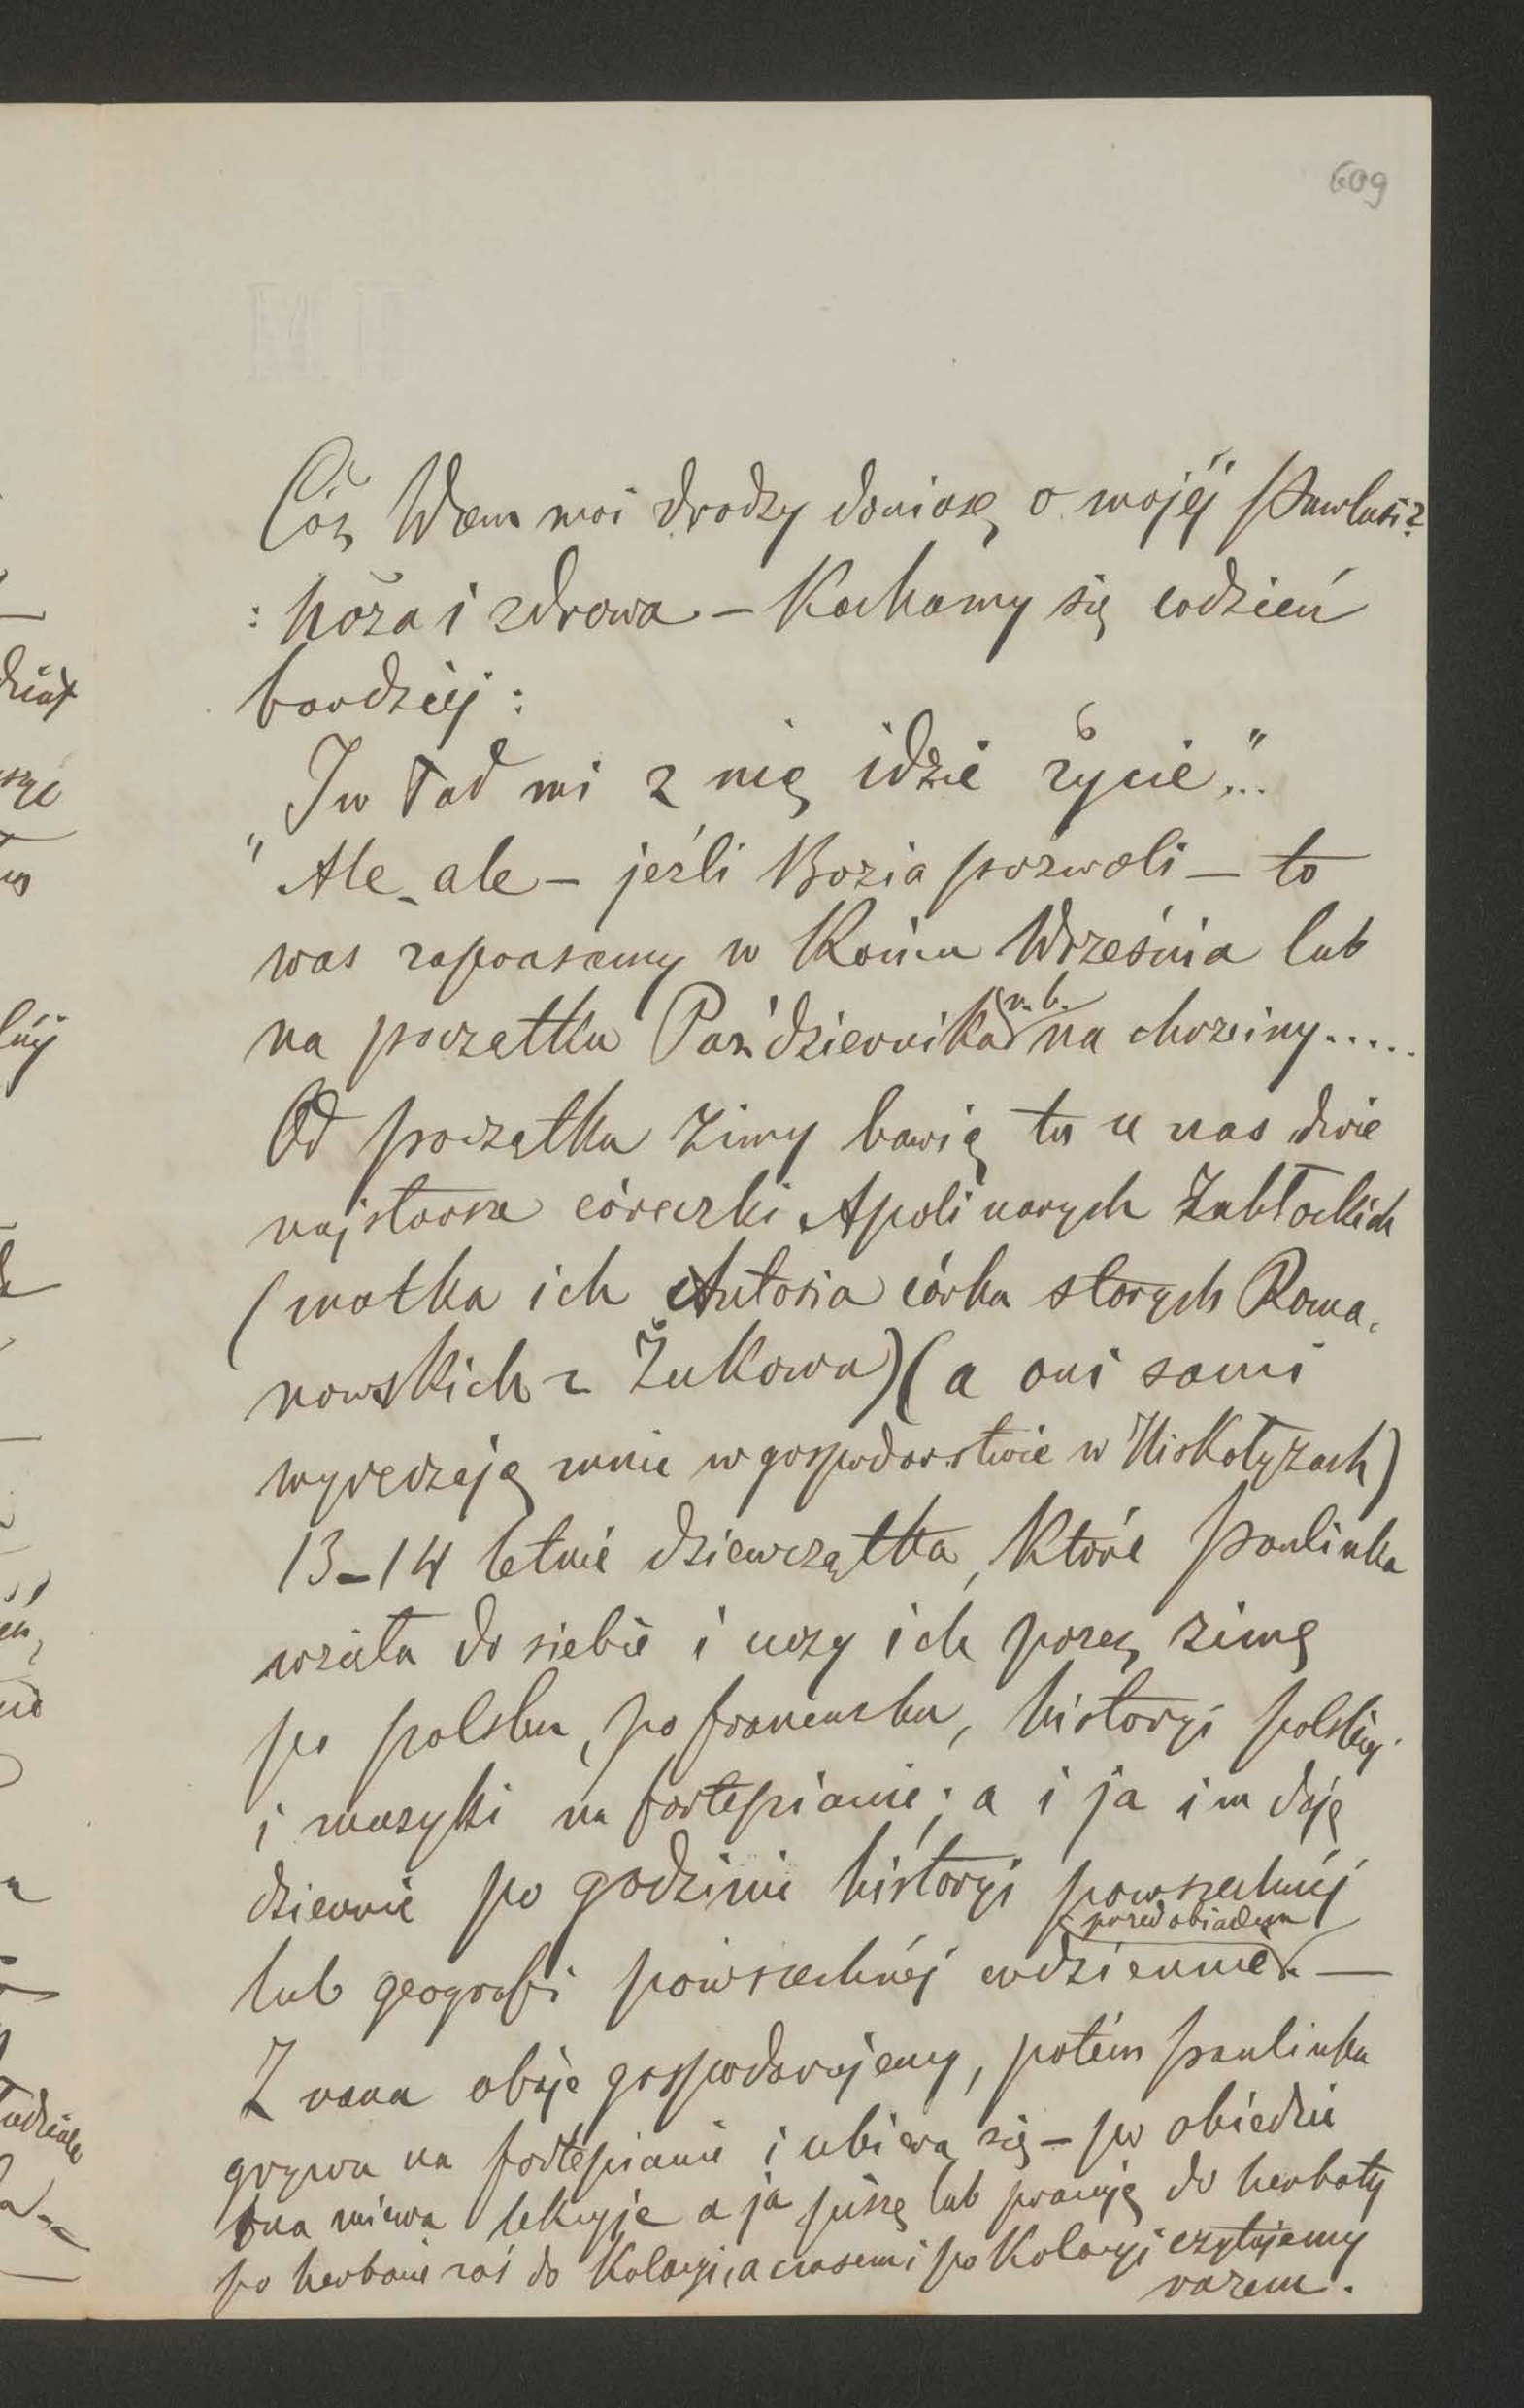 609
Cóż Wam moi drodzy doniosę o mojéj Pawlusi?
: hoża i zdrowa – Kochamy się codzień
bardziéj :
I w ład mi z nią idzie życie"...
" Ale, ale – jeśli Bozia pozwoli – to
was zaprasamy w Końcu Września lub
na początku Października n.b. na chrzciny.....
Od początku Zimy bawią tu u nas dwie
najstarsze córeczki Apolinarych Zabłockich
(matka ich Antosia córka starych Roma-
nowskich z Żukowa) (a oni sami
wyręczają mnie w gospodarstwie w Niskołyzach)
13–14 letnie dziewczątka, które Paulinka
wzięła do siebie i uczy ich przez zimę
po polsku, po francusku, historyi polskiéj
i muzyki na fortepianie; a i ja im daję
dziennie po godzinie historyi powszechnéj
lub geografi powszechnéj codziennie przed obiadem. —
Z rana oboje gospodarujemy, potém Paulinka
grywa na fortepianie i ubiera się – po obiedzie
Ona miewa lekcyje a ja piszę lub pracuję do herbaty
po herbacie zaś do Kolacyi, a czasem i po Kolacyi czytujemy
razem.